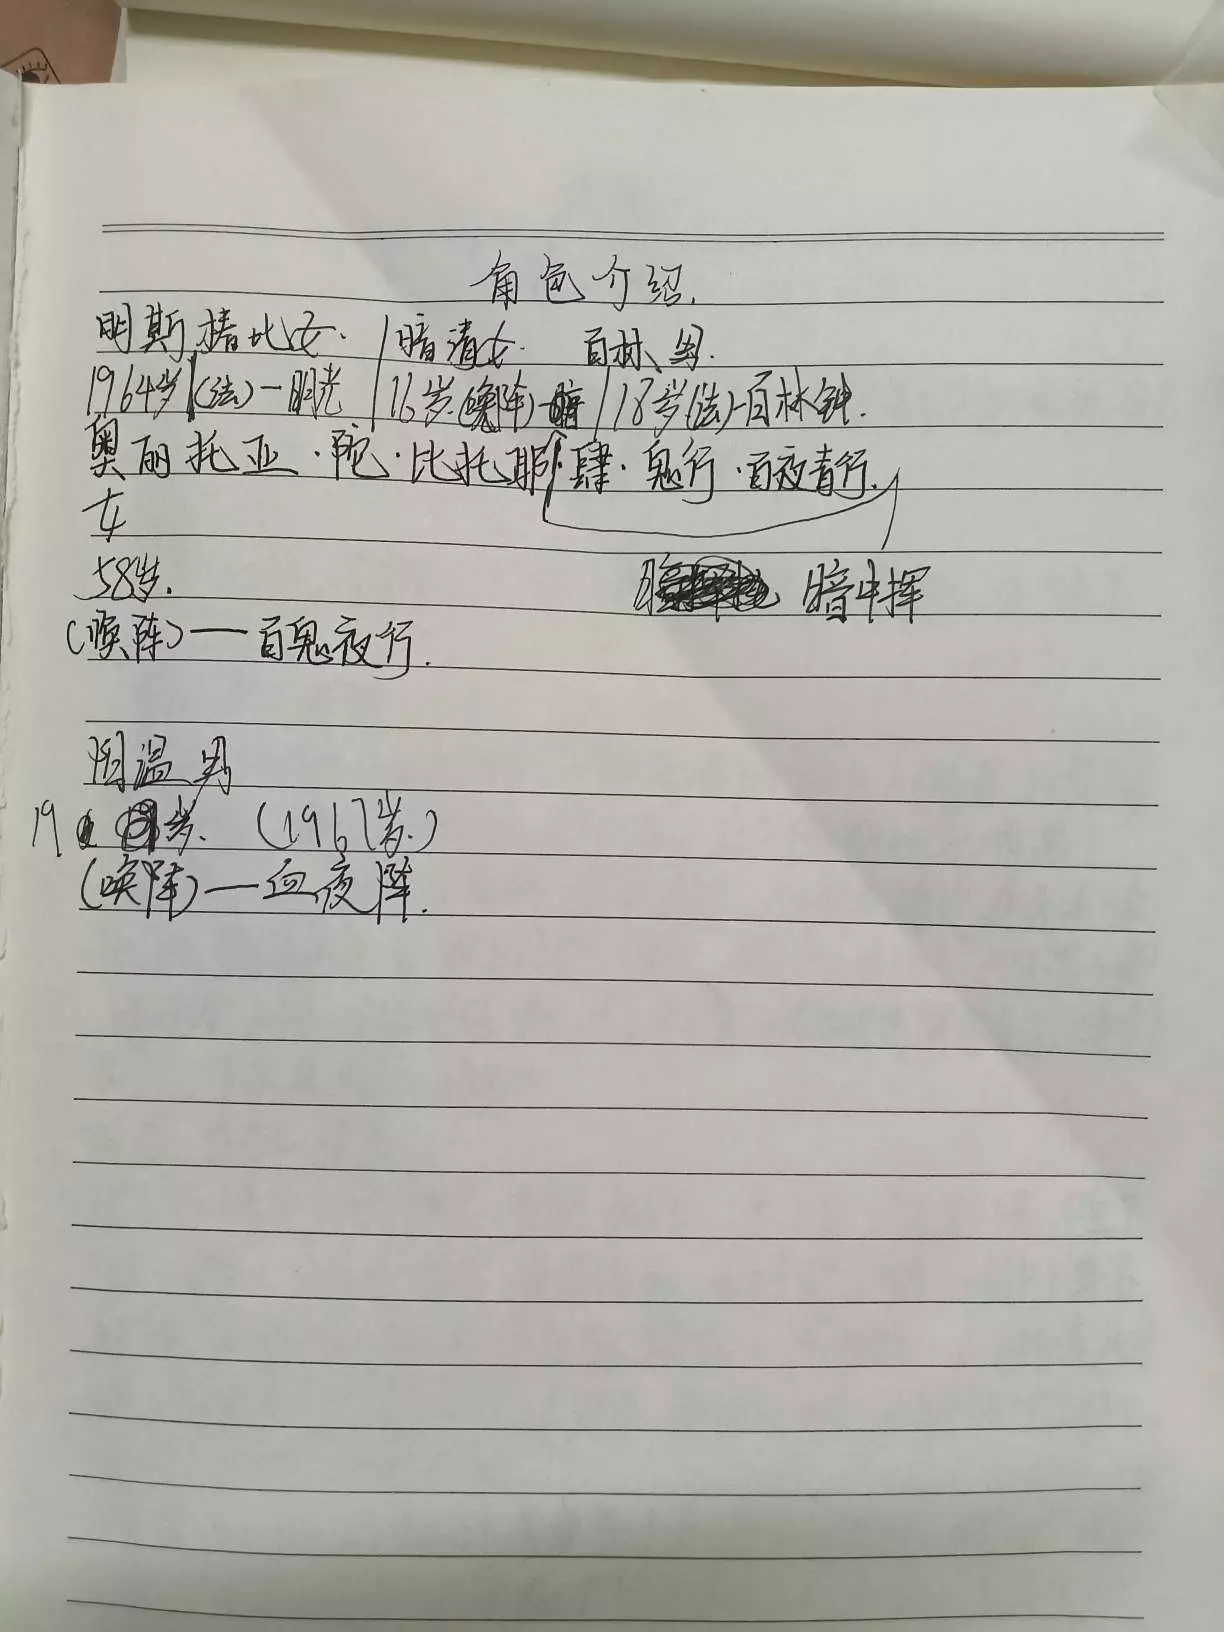 角色介绍.
明斯椿比女. 暗清女. 百林、男.
1964岁(法)—明光 16岁(唤阵)—暗 18岁(法)—百林钟.
奥丽托亚·陀·比托耶·肆·鬼行·百夜青行.
女
58岁.
暗中挥
(唤阵)—百鬼夜行.
温 男
19 岁. (1967岁.)
(唤阵)—血夜阵.